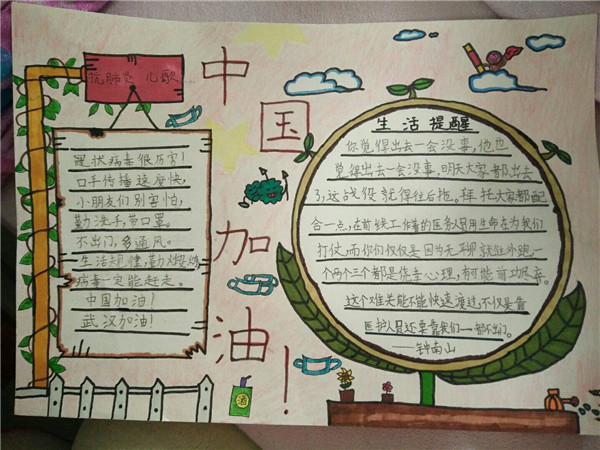 抗肺炎 儿歌
冠状病毒很厉害!
口手传播速度快,
小朋友们别害怕,
勤洗手,带口罩。
不出门,多通风。
生活规律,勤锻炼,
病毒一定能赶走。
中国加油!
武汉加油!
中国加油!
生活提醒
你觉得出去一会没事,他也
觉得出去一会没事,明天大家都出去
了,这战役就得往后拖。拜托大家都配
合一点,在前线工作着的医务人员用生命在为我们
打仗,而你们仅仅是因为无聊就往外跑一
个两个三个都是侥幸心理,有可能前功尽弃。
这个难关能不能快速渡过,不仅是靠
医护人员还要靠我们一一都不出门。
——钟南山
酒